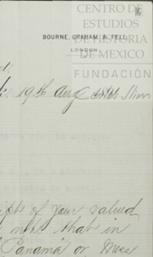 CENTRO DE
ESTUDIOS
DE HISTORIA
DE MEXICO
FUNDACIÓN
BOURNE, GRAHAM & FELL.
LONDON
19th Aug
of your valued
note that in
Panamá or